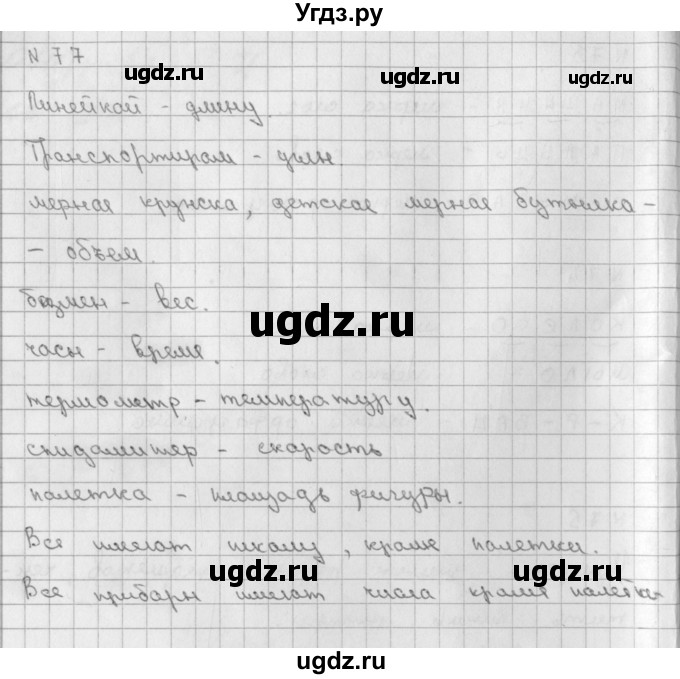 Угдз.ру
N 77
ugdz.ru ugdz.ru ugdz.ru
Линейкой - длину.
Транспортиром -
мерная кружска, детское мерная бутылка -
- объем.
безмен - вес.
ugdz.ru ugdz.ru
часы - время.
термометр - температуру.
спидамитер - скарость
палетка - площадь фигуры.
Все имеют шкалу, кроме палетки.
ugdz.ru ugdz.ru ugdz.ru
Все приборы имеют числа кроме палетки
ugdz.ru